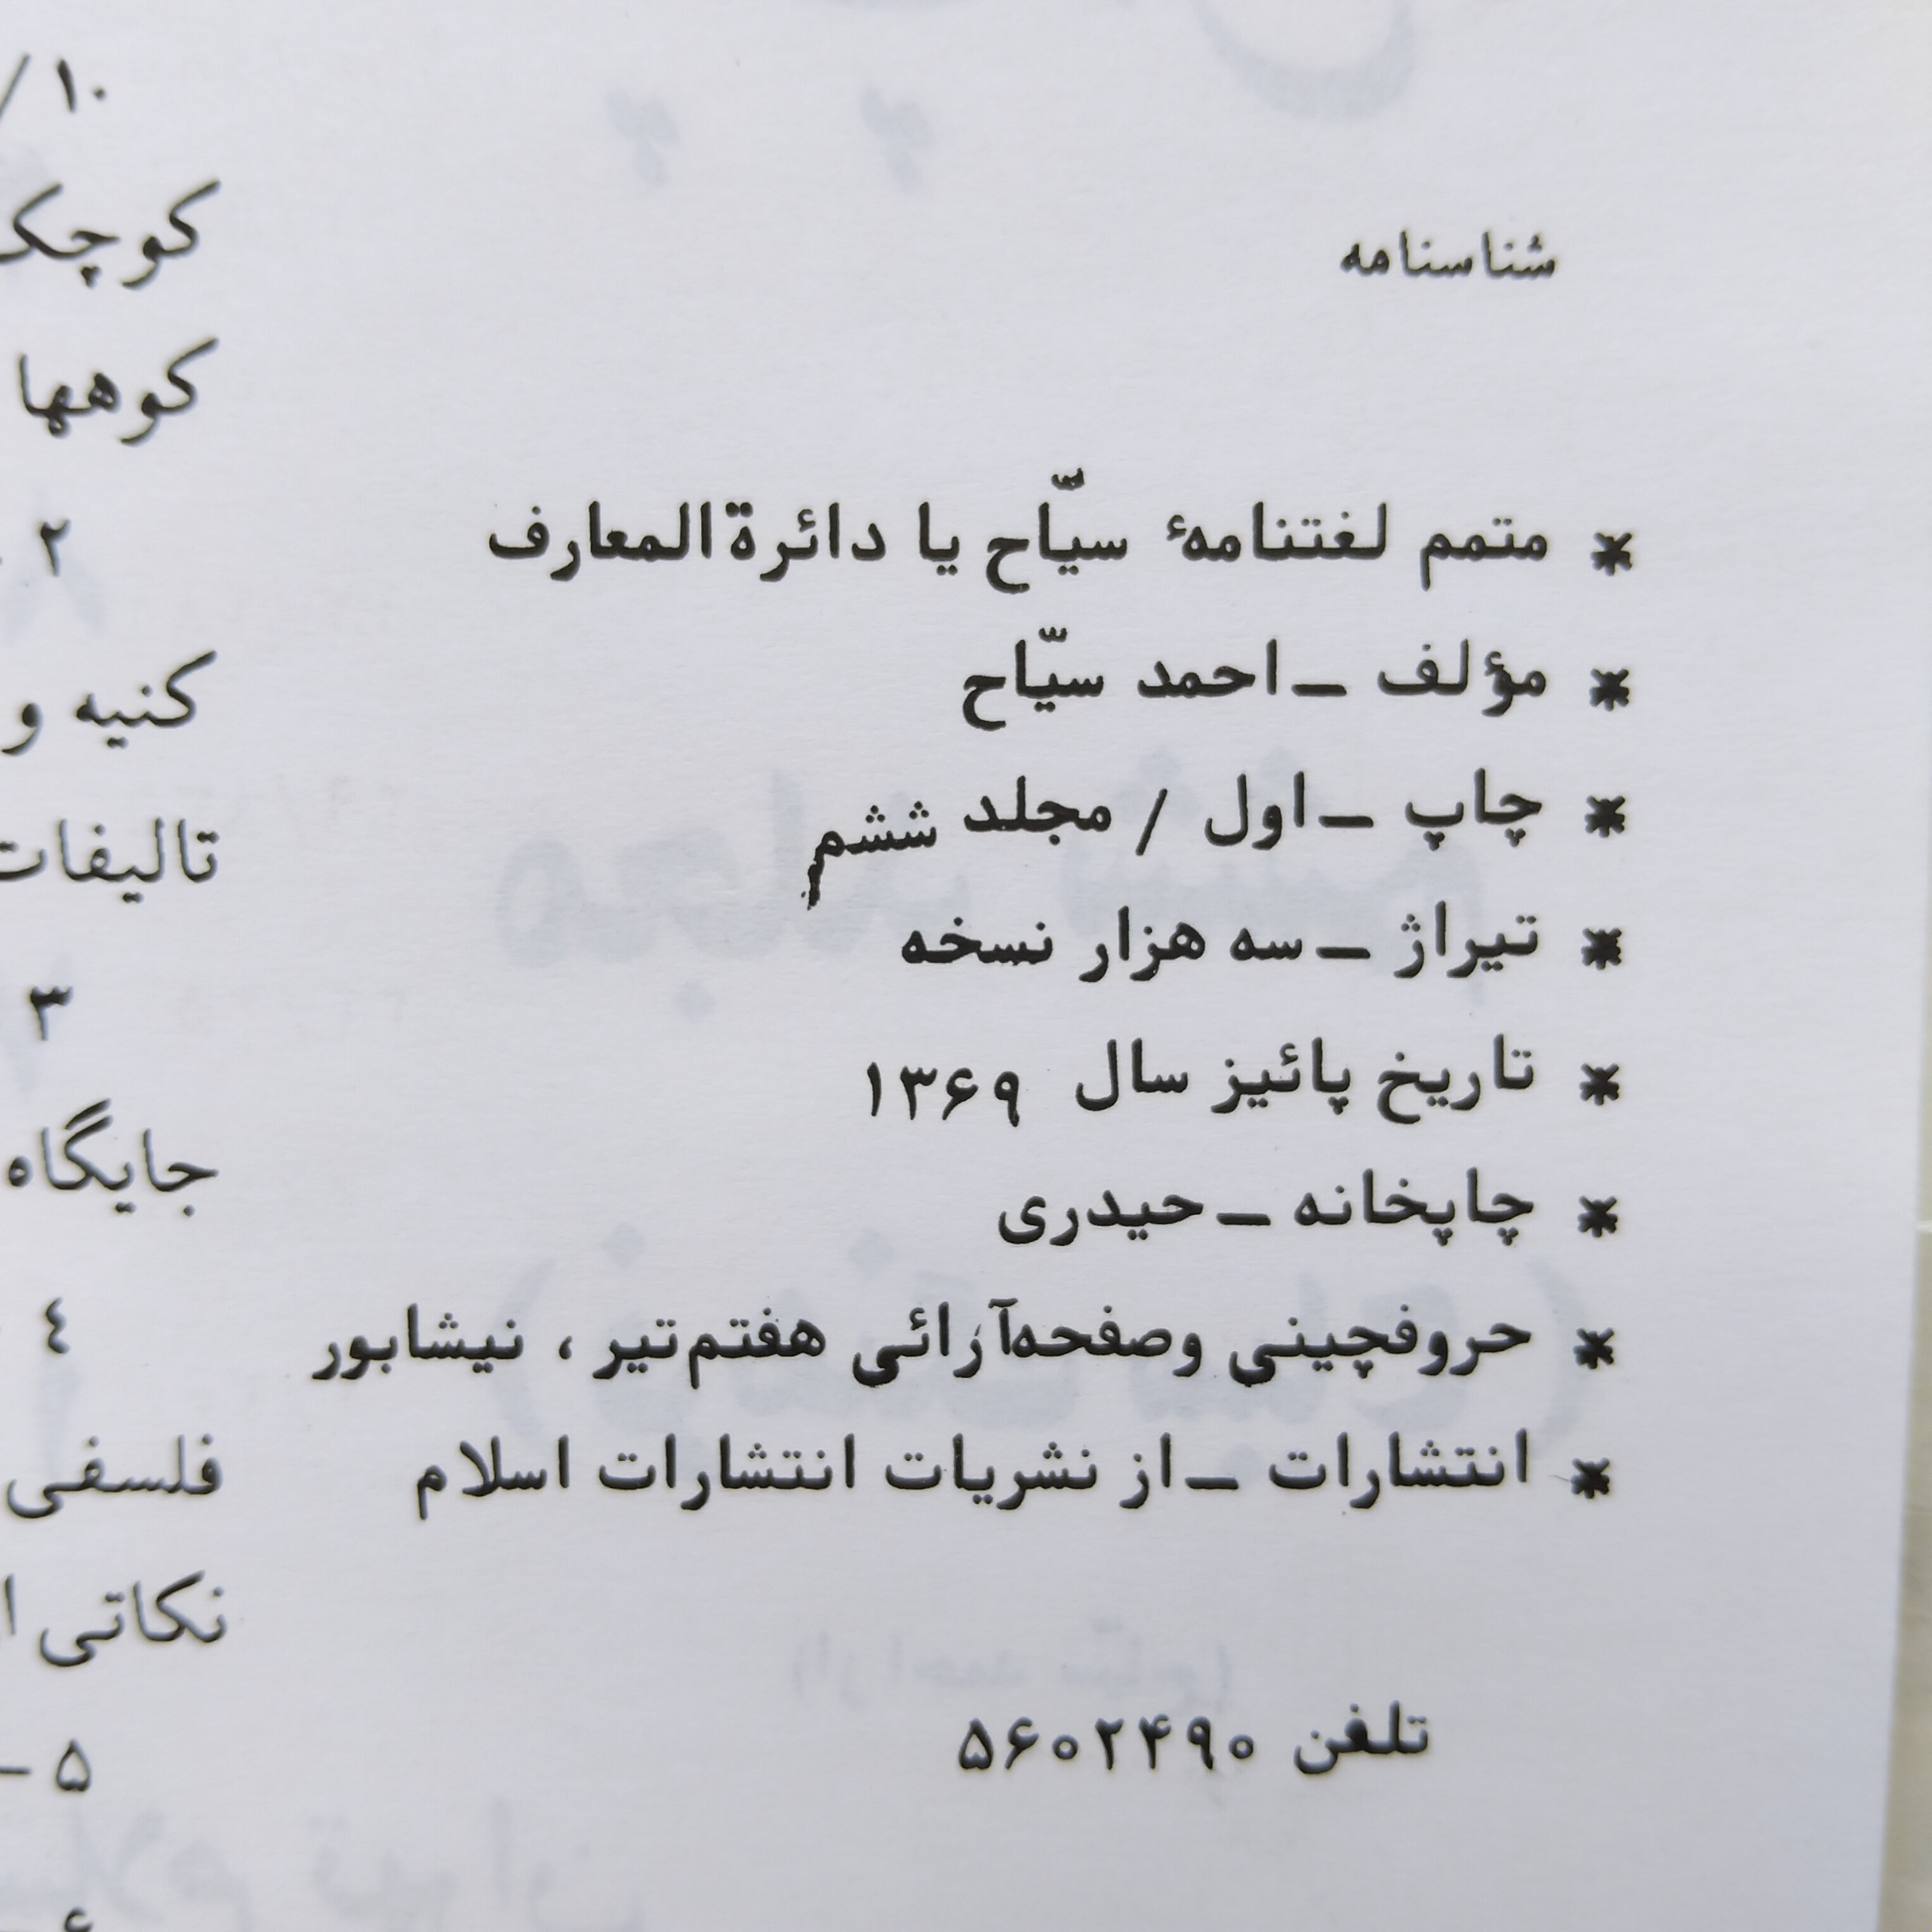 شناسنامه
* متمم لغتنامهٔ سیّاح یا دائرةالمعارف
* مؤلف ــ احمد سیّاح
* چاپ ــ اول / مجلد ششم
* تیراژ ــ سه هزار نسخه
* تاریخ پائیز سال ۱۳۶۹
* چاپخانه ــ حیدری
* حروفچینی وصفحه‌آرائی هفتم‌تیر ، نیشابور
* انتشارات ــ از نشریات انتشارات اسلام
تلفن ۵۶۰۲۴۹۰
۱۰ /
کوچک
کوهها
۲
کنیه و
تالیفات
۳
جایگاه
٤
فلسفی
نکاتی
۵ –